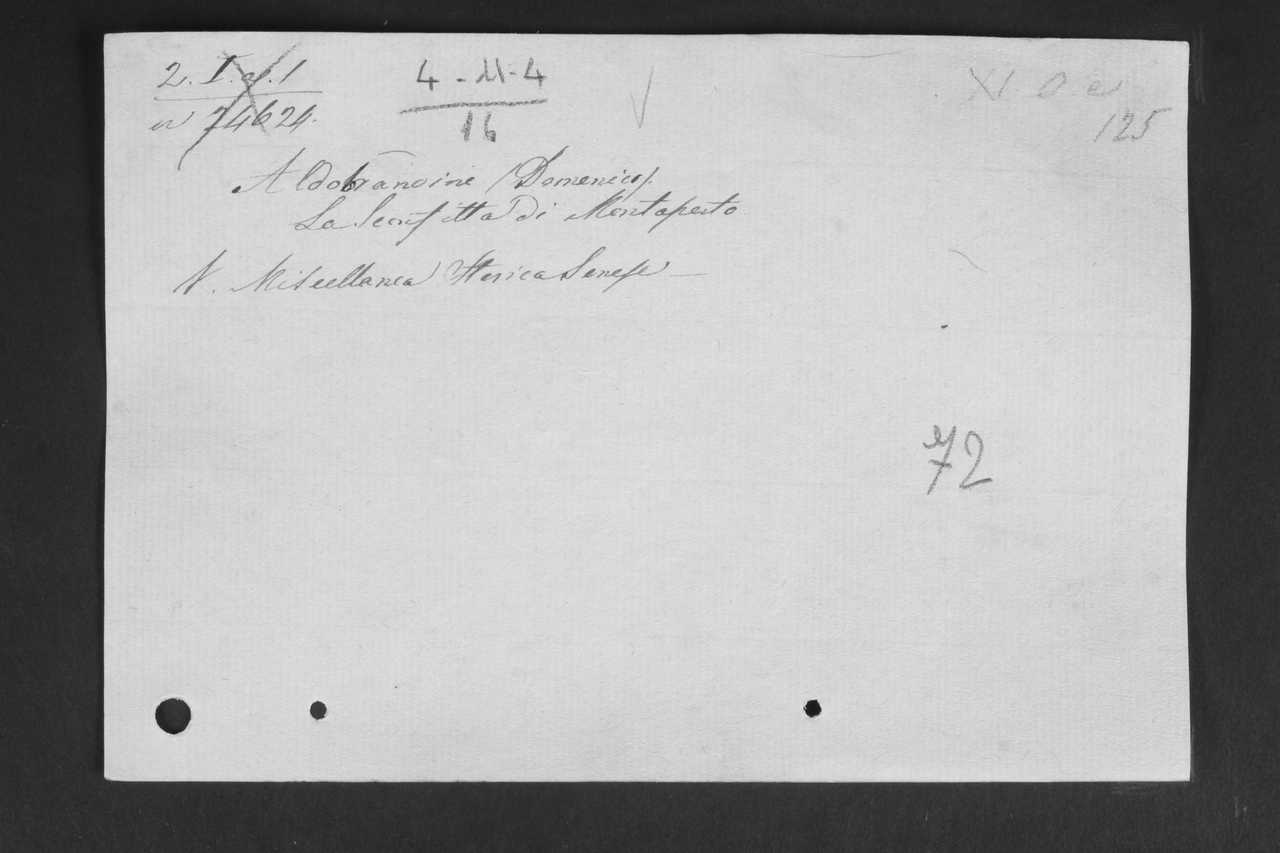 2. I. d. 1
n 74624.
4 - 11 - 4
16
XI. O. e
125
Aldobrandine (Domenico).
La Sconfitta di Montaperto
V. Miscellanea Storica Senese —
72